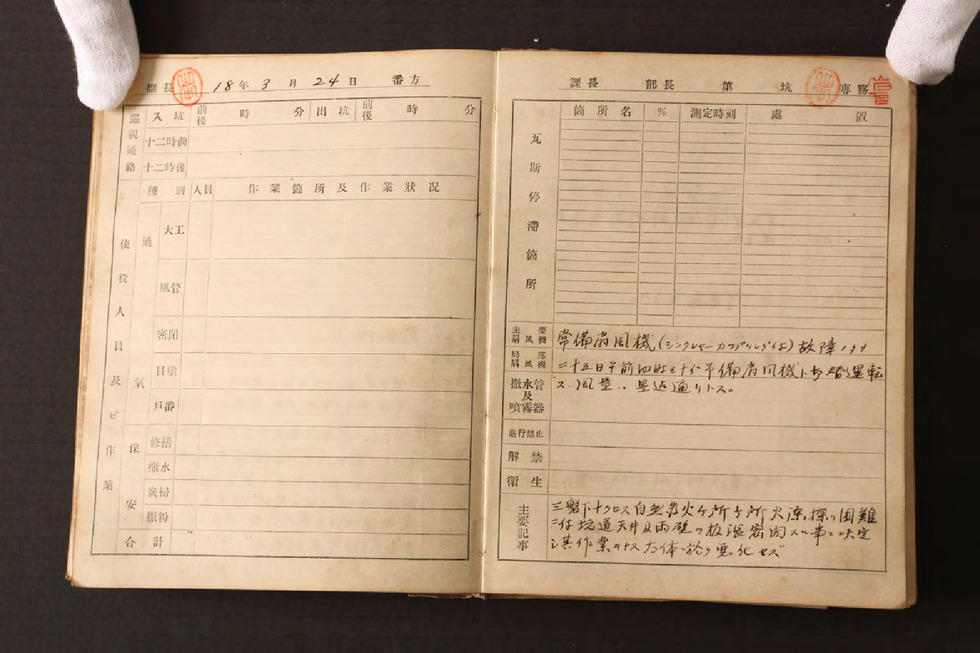 副長 18年 3月 24日 番方
巡視通路 入坑 前後 時 分 出坑 前後 時 分
十二時前
十二時後
使役人員及ビ作業
種別 人員 作業箇所及作業状況
通氣
大工
風管
密閉
目塗
戸番
保安
修繕
撒水
炭掃
撒粉
合計
課長 部長 第 坑 専務
瓦斯停滞箇所
箇所名 % 測定時刻 處置
主要扇風機 常備扇風機(シンクレヤーカップリング) 故障ノタメ
局部扇風機 二十五日午前四時三十分予備扇風機ト 運転
撒水管及噴霧器 ス 風量ハ 通リトス。
進行禁止
解禁
衛生
主要記事
三 下十クロス自然発火ヶ所 困難
ニ付坑道天井及両壁 板張密閉スル事ニ決定
シ其作業 大体ニ於テ変化セズ